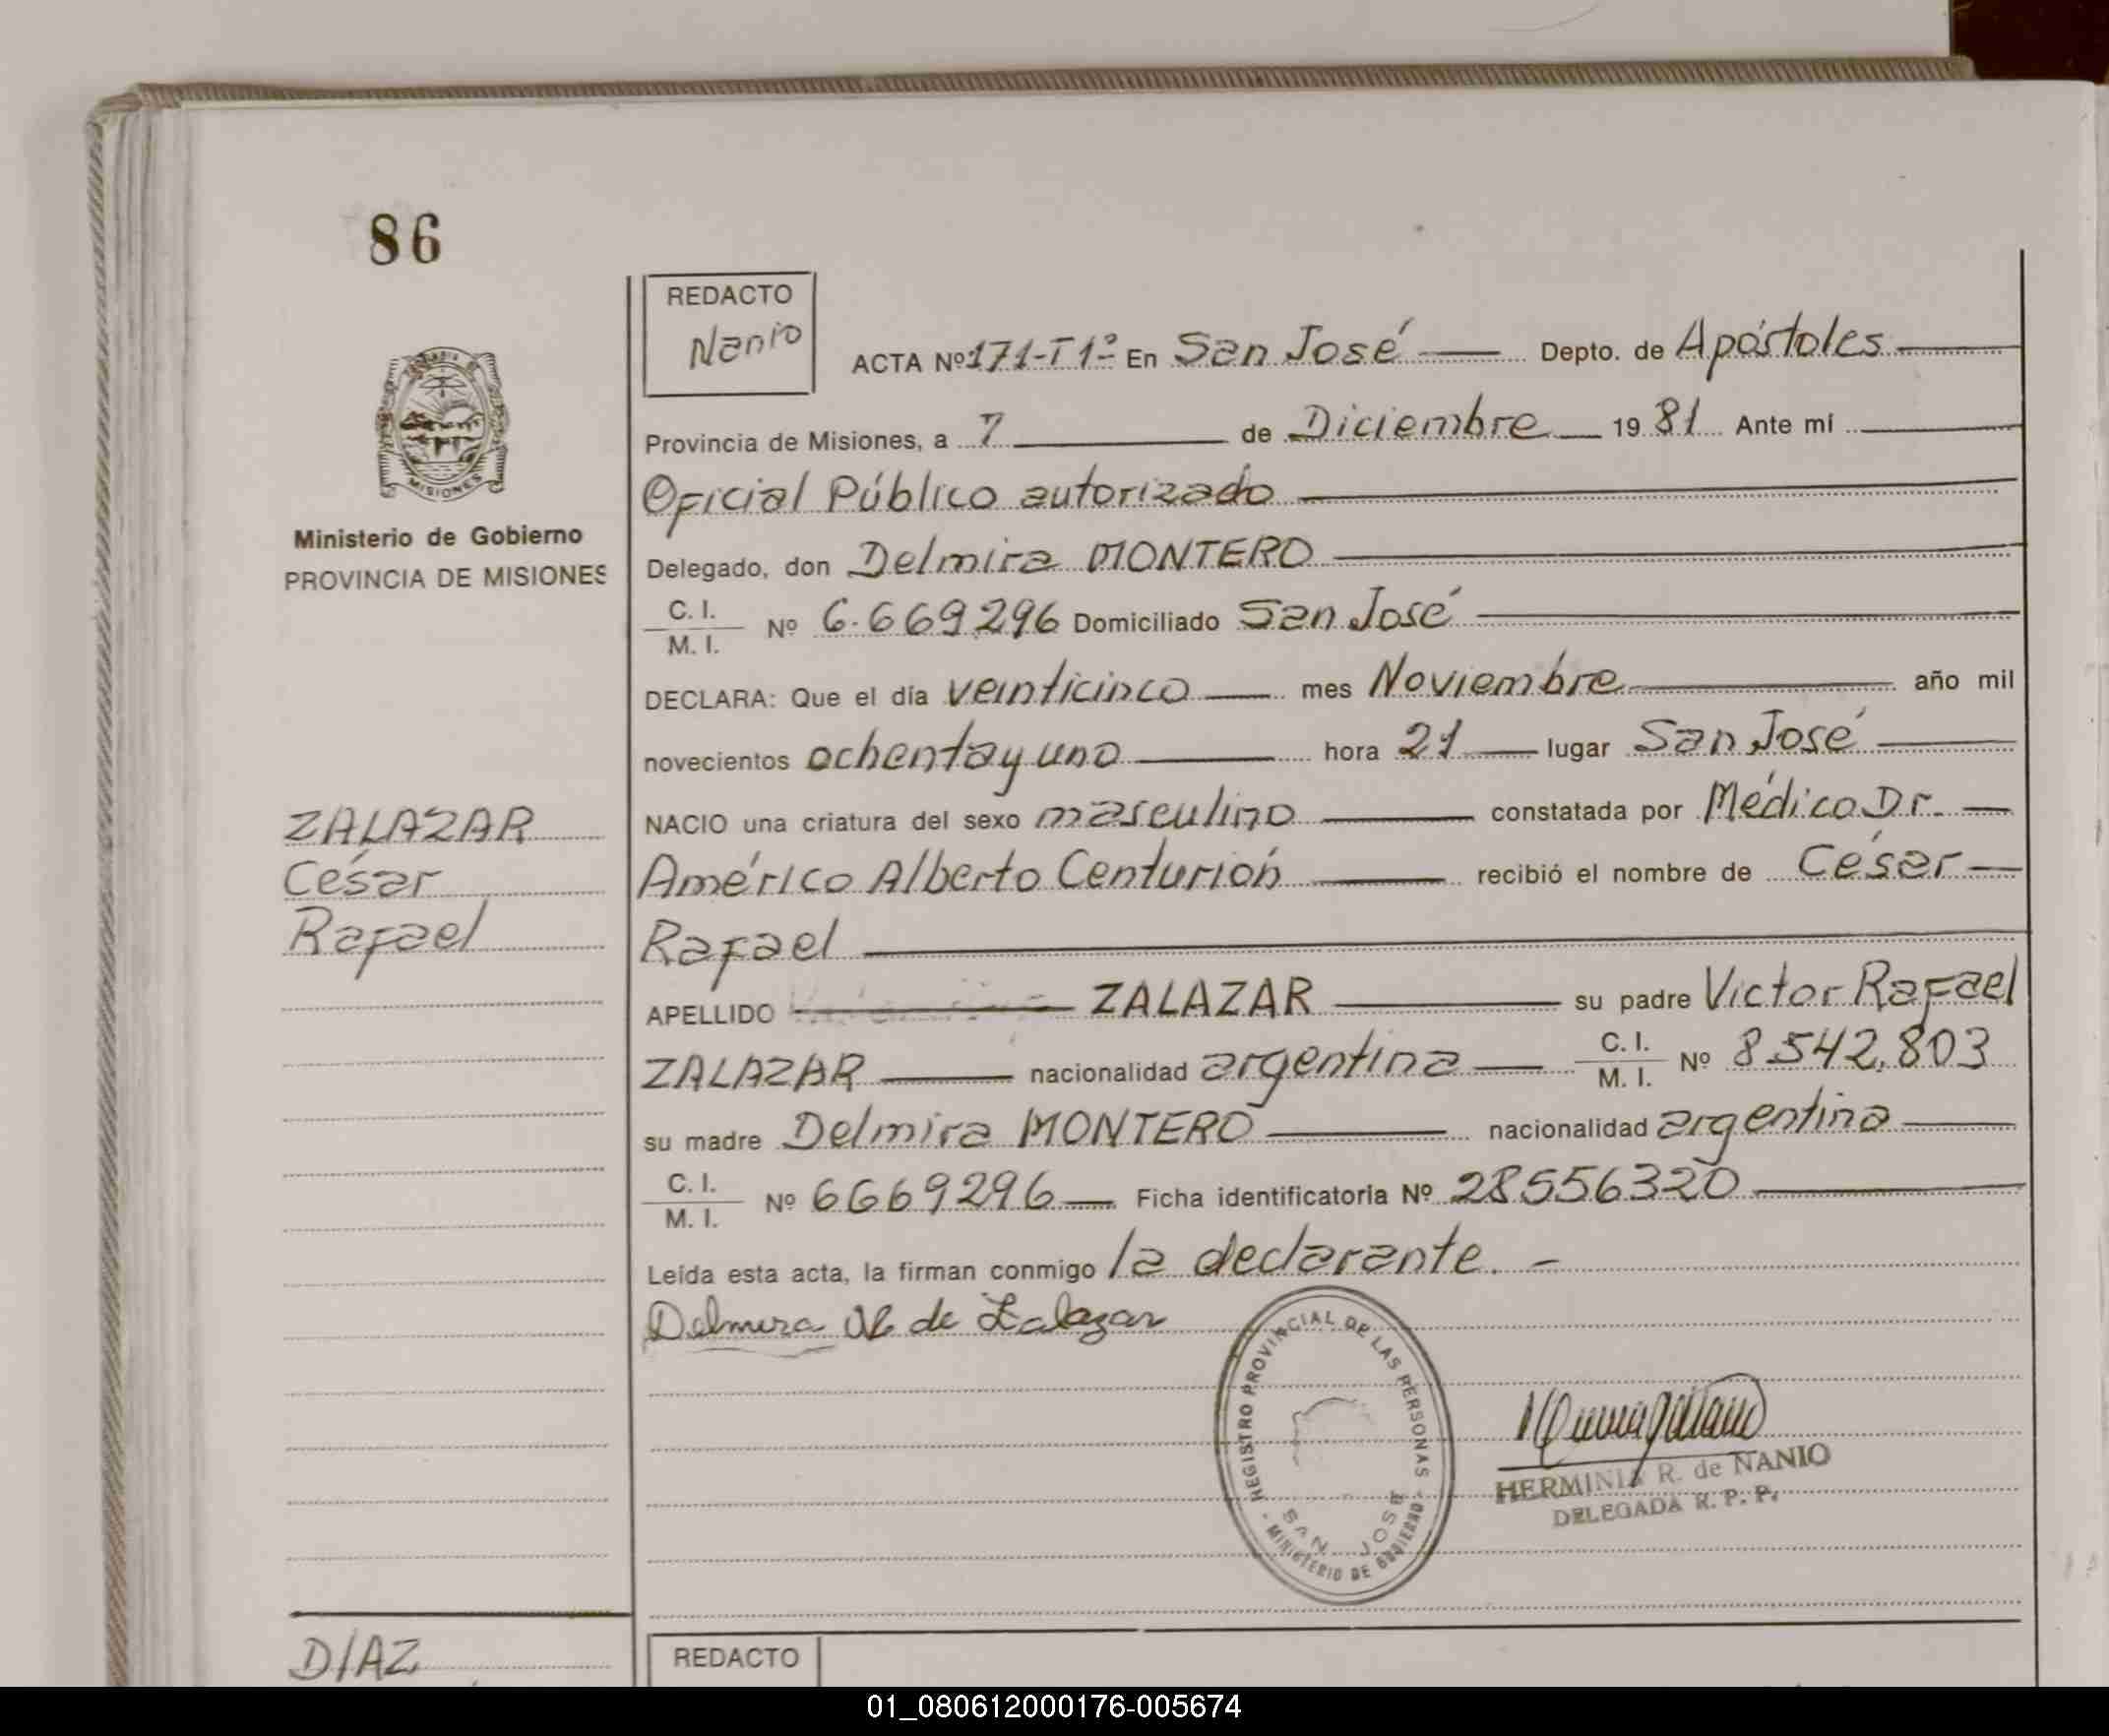 86
REDACTO
Nanio
ACTA Nº 171-T1º En San José Depto. de Apóstoles
Provincia de Misiones, a 7 de Diciembre 1981 Ante mí
Oficial Público autorizado
Delegado, don Delmira MONTERO
C. I.
M. I. Nº 6.669.296 Domiciliado San José
DECLARA: Que el día veinticinco mes Noviembre año mil
novecientos ochenta y uno hora 21 lugar San José
NACIO una criatura del sexo masculino constatada por Médico Dr.
Américo Alberto Centurión recibió el nombre de César
Rafael
APELLIDO ZALAZAR su padre Victor Rafael
ZALAZAR nacionalidad argentina C. I. M. I. Nº 8.542.803
su madre Delmira MONTERO nacionalidad argentina
C. I.
M. I. Nº 6669296 Ficha identificatoria Nº 28556320
Leída esta acta, la firman conmigo la declarante.-
Delmira M de Zalazar
REGISTRO PROVINCIAL DE LAS PERSONAS
SAN JOSE
- MINISTERIO DE GOBIERNO -
HERMINIA R. de NANIO
DELEGADA R. P. P.
MISIONES
Ministerio de Gobierno
PROVINCIA DE MISIONES
ZALAZAR
César
Rafael
DIAZ
REDACTO
01_080612000176-005674